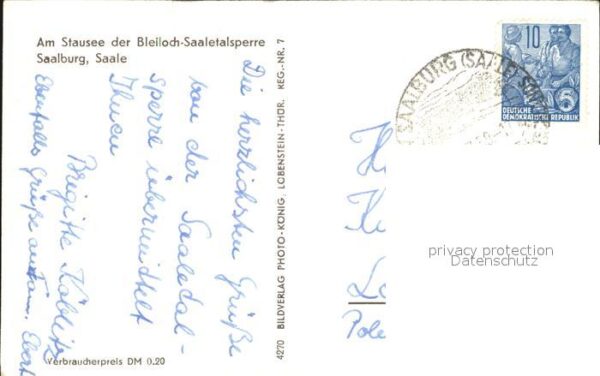 Am Stausee der Bleiloch-Saaletalsperre
Saalburg, Saale
Die herzlichsten Grüße
von der Saaledal-
sperre übermittelt
Ihnen
Brigitte
Ebenfalls Grüße
Verbraucherpreis DM 0.20
4270 BILDVERLAG PHOTO-KÖNIG, LOBENSTEIN-THÜR. REG.-NR. 7
SAALBURG (SAALE)
10
5
DEUTSCHE
DEMOKRATISCHE REPUBLIK
privacy protection
Datenschutz